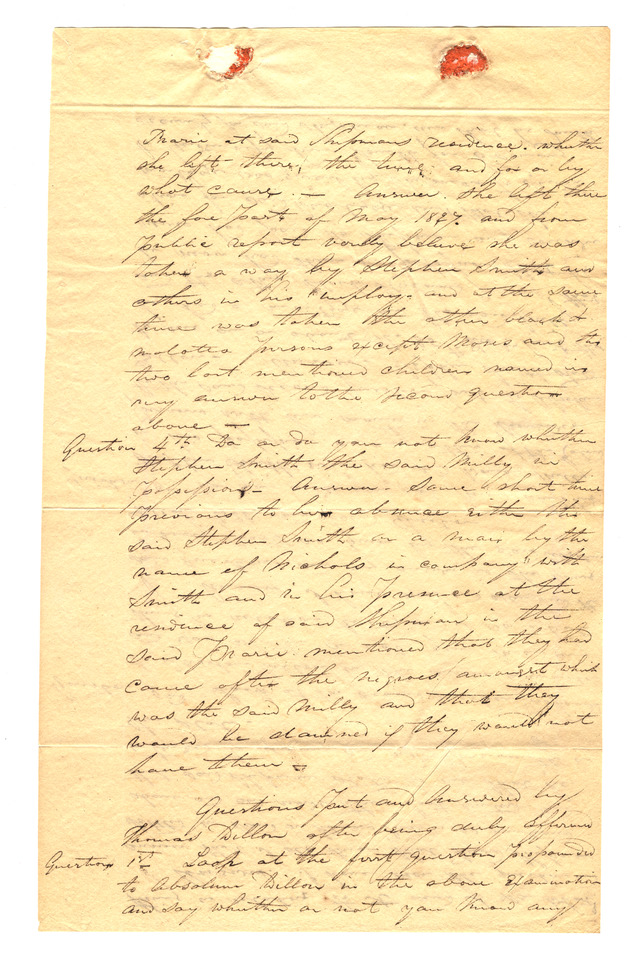 Prarie at said Shipmans residence. whether
she left there, the time, and for or by
what cause. — Answer. She left there
the fore Part of May 1827. and from
Public report verily believe she was
taken a way by Stephen Smith and
others in his employ. and at the same
time was taken the other black &
molatta Persons except Moses and the
two last mentioned children named in
my answer to the second question
above —
Question 4th Do or do you not know whether
Stephen Smith the said Milly in
Possession— Answer. Some short time
Previous to her absence either the
said Stephen Smith or a man by the
name of Nichols in company with
Smith and in his Presence at the
residence of said Shipman in the
said Prarie mentioned that they had
come after the negroes amongst which
was the said Milly and that they
would be damned if they would not
have them —
Questions Put and Answered by
Thomas Dillon after being duly affirmed
Question 1st Look at the first question propounded
to Absalom Dillon in the above Examination
and say whether or not you know any